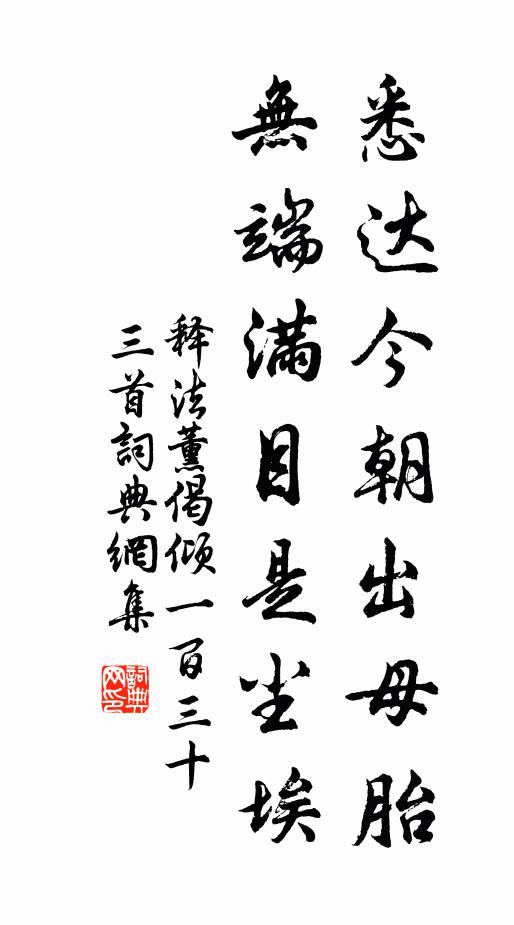 悉达今朝出母胎
無端满目是尘埃
释法薰偈倾一百三十
三首詞典網集
詞典
网印